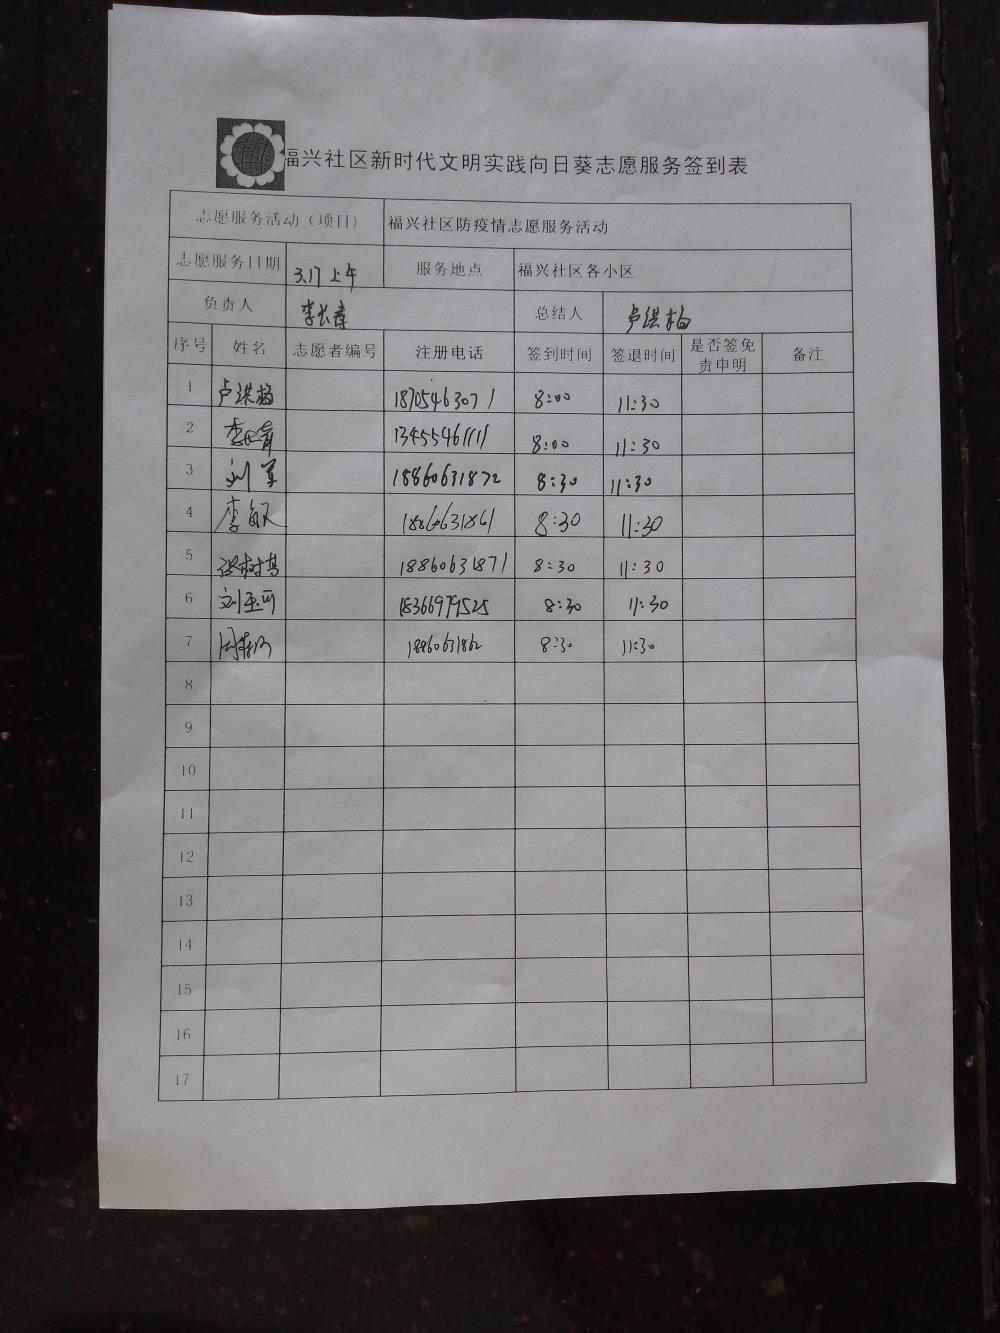 福兴社区新时代文明实践向日葵志愿服务签到表
志愿服务活动（项目） 福兴社区防疫情志愿服务活动
志愿服务日期 3.17 上午 服务地点 福兴社区各小区
负责人 李长青 总结人 卢洪梅
序号 姓名 志愿者编号 注册电话 签到时间 签退时间 是否签免责申明 备注
1 卢洪梅 18705463071 8:00 11:30
2 李长青 13455461111 8:00 11:30
3 刘军 18860631872 8:30 11:30
4 李敏 18860631861 8:30 11:30
5 张树 18860631871 8:30 11:30
6 刘 18366979525 8:30 11:30
7 周 18860631862 8:30 11:30
8
9
10
11
12
13
14
15
16
17